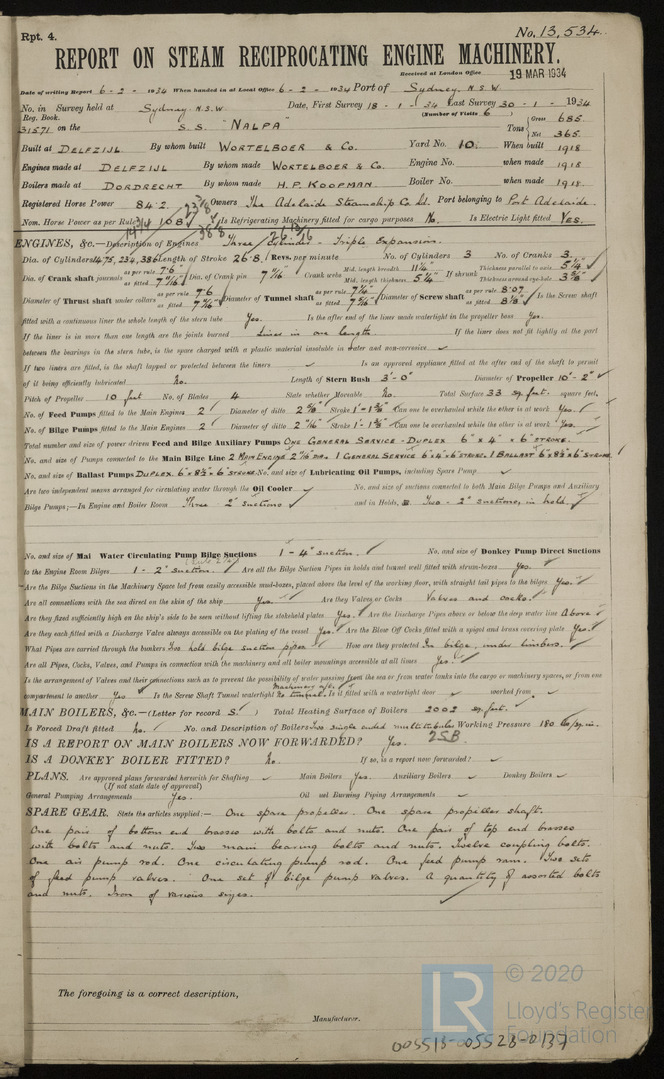 Rpt. 4.
No. 13,534.
REPORT ON STEAM RECIPROCATING ENGINE MACHINERY.
Received at London Office 19 MAR 1934
Date of writing Report 6 - 2 - 1934 When handed in at Local Office 6 - 2 - 1934 Port of Sydney. N.S.W
No. in Survey held at Sydney. N.S.W Date, First Survey 18 - 1 - 34 Last Survey 30 - 1 - 1934
Reg. Book. (Number of Visits 6)
31571 on the S.S. "NALPA" Tons Gross 685 Net 365
Built at DELFZIJL By whom built WORTELBOER & Co. Yard No. 10. When built 1918
Engines made at DELFZIJL By whom made WORTELBOER & Co. Engine No. when made 1918
Boilers made at DORDRECHT By whom made H.P. KOOPMAN Boiler No. when made 1918.
Registered Horse Power 84.2 Owners The Adelaide Steamship Co. Ld. Port belonging to Port Adelaide.
Nom. Horse Power as per Rule 108 Is Refrigerating Machinery fitted for cargo purposes No. Is Electric Light fitted YES.
ENGINES, &c.—Description of Engines Three Cylinder - Triple Expansion.
Dia. of Cylinders Length of Stroke 26.8 Revs. per minute No. of Cylinders 3 No. of Cranks 3.
Dia. of Crank shaft journals as per rule 7.6" as fitted 7 11/16" Dia. of Crank pin 7 11/16" Crank webs Mid. length breadth 11 1/4" Mid. length thickness 5 1/4" If shrunk Thickness parallel to axis 5 1/4" Thickness around eye-hole
Diameter of Thrust shaft under collars as per rule 7.6 as fitted Diameter of Tunnel shaft as per rule as fitted Diameter of Screw shaft as per rule 8.07 as fitted Is the Screw shaft
fitted with a continuous liner the whole length of the stern tube Yes. Is the after end of the liner made watertight in the propeller boss Yes.
If the liner is in more than one length are the joints burned Liner in one length If the liner does not fit tightly at the part
between the bearings in the stern tube, is the space charged with a plastic material insoluble in water and non-corrosive
If two liners are fitted, is the shaft lapped or protected between the liners Is an approved appliance fitted at the after end of the shaft to permit
of it being efficiently lubricated No. Length of Stern Bush 3'-0" Diameter of Propeller 10'-2"
Pitch of Propeller 10 feet No. of Blades 4 State whether Moveable No. Total Surface 33 sq. feet. square feet.
No. of Feed Pumps fitted to the Main Engines 2 Diameter of ditto Stroke Can one be overhauled while the other is at work Yes.
No. of Bilge Pumps fitted to the Main Engines 2 Diameter of ditto Stroke Can one be overhauled while the other is at work Yes.
Total number and size of power driven Feed and Bilge Auxiliary Pumps ONE GENERAL SERVICE - DUPLEX 6" x 4" x 6" STROKE.
No. and size of Pumps connected to the Main Bilge Line 2 MAIN ENGINE 2 11/16" DIA. 1 GENERAL SERVICE 6"x4"x6" STROKE. 1 BALLAST 6"x8½"x6" STROKE.
No. and size of Ballast Pumps DUPLEX. 6"x8½"x6" STROKE. No. and size of Lubricating Oil Pumps, including Spare Pump
Are two independent means arranged for circulating water through the Oil Cooler No. and size of suctions connected to both Main Bilge Pumps and Auxiliary
Bilge Pumps;—In Engine and Boiler Room Three 2" suctions and in Holds, Two - 2" suctions, in hold.
No. and size of Mai Water Circulating Pump Bilge Suctions 1 - 4" suction. No. and size of Donkey Pump Direct Suctions
to the Engine Room Bilges 1 - 2" suction. Are all the Bilge Suction Pipes in holds and tunnel well fitted with strum-boxes Yes.
Are the Bilge Suctions in the Machinery Space led from easily accessible mud-boxes, placed above the level of the working floor, with straight tail pipes to the bilges Yes.
Are all connections with the sea direct on the skin of the ship Yes. Are they Valves or Cocks Valves and cocks.
Are they fixed sufficiently high on the ship's side to be seen without lifting the stokehold plates Yes. Are the Discharge Pipes above or below the deep water line Above
Are they each fitted with a Discharge Valve always accessible on the plating of the vessel Yes. Are the Blow Off Cocks fitted with a spigot and brass covering plate Yes.
What Pipes are carried through the bunkers Two hold bilge suction pipes How are they protected In bilge, under limbers.
Are all Pipes, Cocks, Valves, and Pumps in connection with the machinery and all boiler mountings accessible at all times Yes.
Is the arrangement of Valves and their connections such as to prevent the possibility of water passing from the sea or from water tanks into the cargo or machinery spaces, or from one
compartment to another Yes Is the Screw Shaft Tunnel watertight Machinery aft No tunnel. Is it fitted with a watertight door worked from
MAIN BOILERS, &c.—(Letter for record S.) Total Heating Surface of Boilers 2002 sq. feet.
Is Forced Draft fitted No. No. and Description of Boilers Two single ended multitubular Working Pressure 180 lbs/sq.in.
IS A REPORT ON MAIN BOILERS NOW FORWARDED? Yes. 2SB.
IS A DONKEY BOILER FITTED? No. If so, is a report now forwarded?
PLANS. Are approved plans forwarded herewith for Shafting Main Boilers Yes. Auxiliary Boilers Donkey Boilers
(If not state date of approval)
General Pumping Arrangements Yes. Oil uel Burning Piping Arrangements
SPARE GEAR. State the articles supplied:— One spare propeller. One spare propeller shaft.
One pair of bottom end brasses with bolts and nuts. One pair of top end brasses
with bolts and nuts. Two main bearing bolts and nuts. Twelve coupling bolts.
One air pump rod. One circulating pump rod. One feed pump ram. Two sets
of feed pump valves. One set of bilge pump valves. A quantity of assorted bolts
and nuts. Iron of various sizes.
The foregoing is a correct description,
Manufacturer.
LR © 2020
Lloyd's Register
Foundation
005518-005528-0137